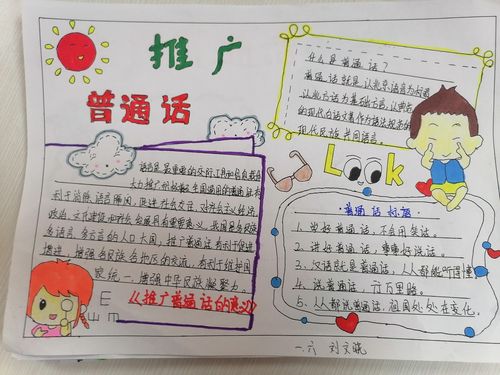 推广
普通话
什么是普通话?
普通话就是以北京语音为标准
以北方话为基础方言,以典范
的现代白话文著作为语法规范的
现代民族共同语言。
语言是最重要的交际工具和信息载体
大力推广和
全国通用的普通话有
利于消除语言隔阂,促进社会交往,对社会主义经济
政治、文化建设和社会发展具有重要意义。我国是多民族
多语言、多方言的人口大国,推广普通话有利于促进
增进
各民族各地区的交流,有利于维护国
家统一,增强中华民族凝聚力。
《推广普通话的意义》
Look
普通话标语
1、学好普通话,不自用笑话。
2、讲好普通话,事事好说话。
3、汉语就是普通话,人人都能听得懂
4、说普通话,行万里路。
5、人人都说普通话,祖国处处在变化。
E
m
一.六 刘文晓